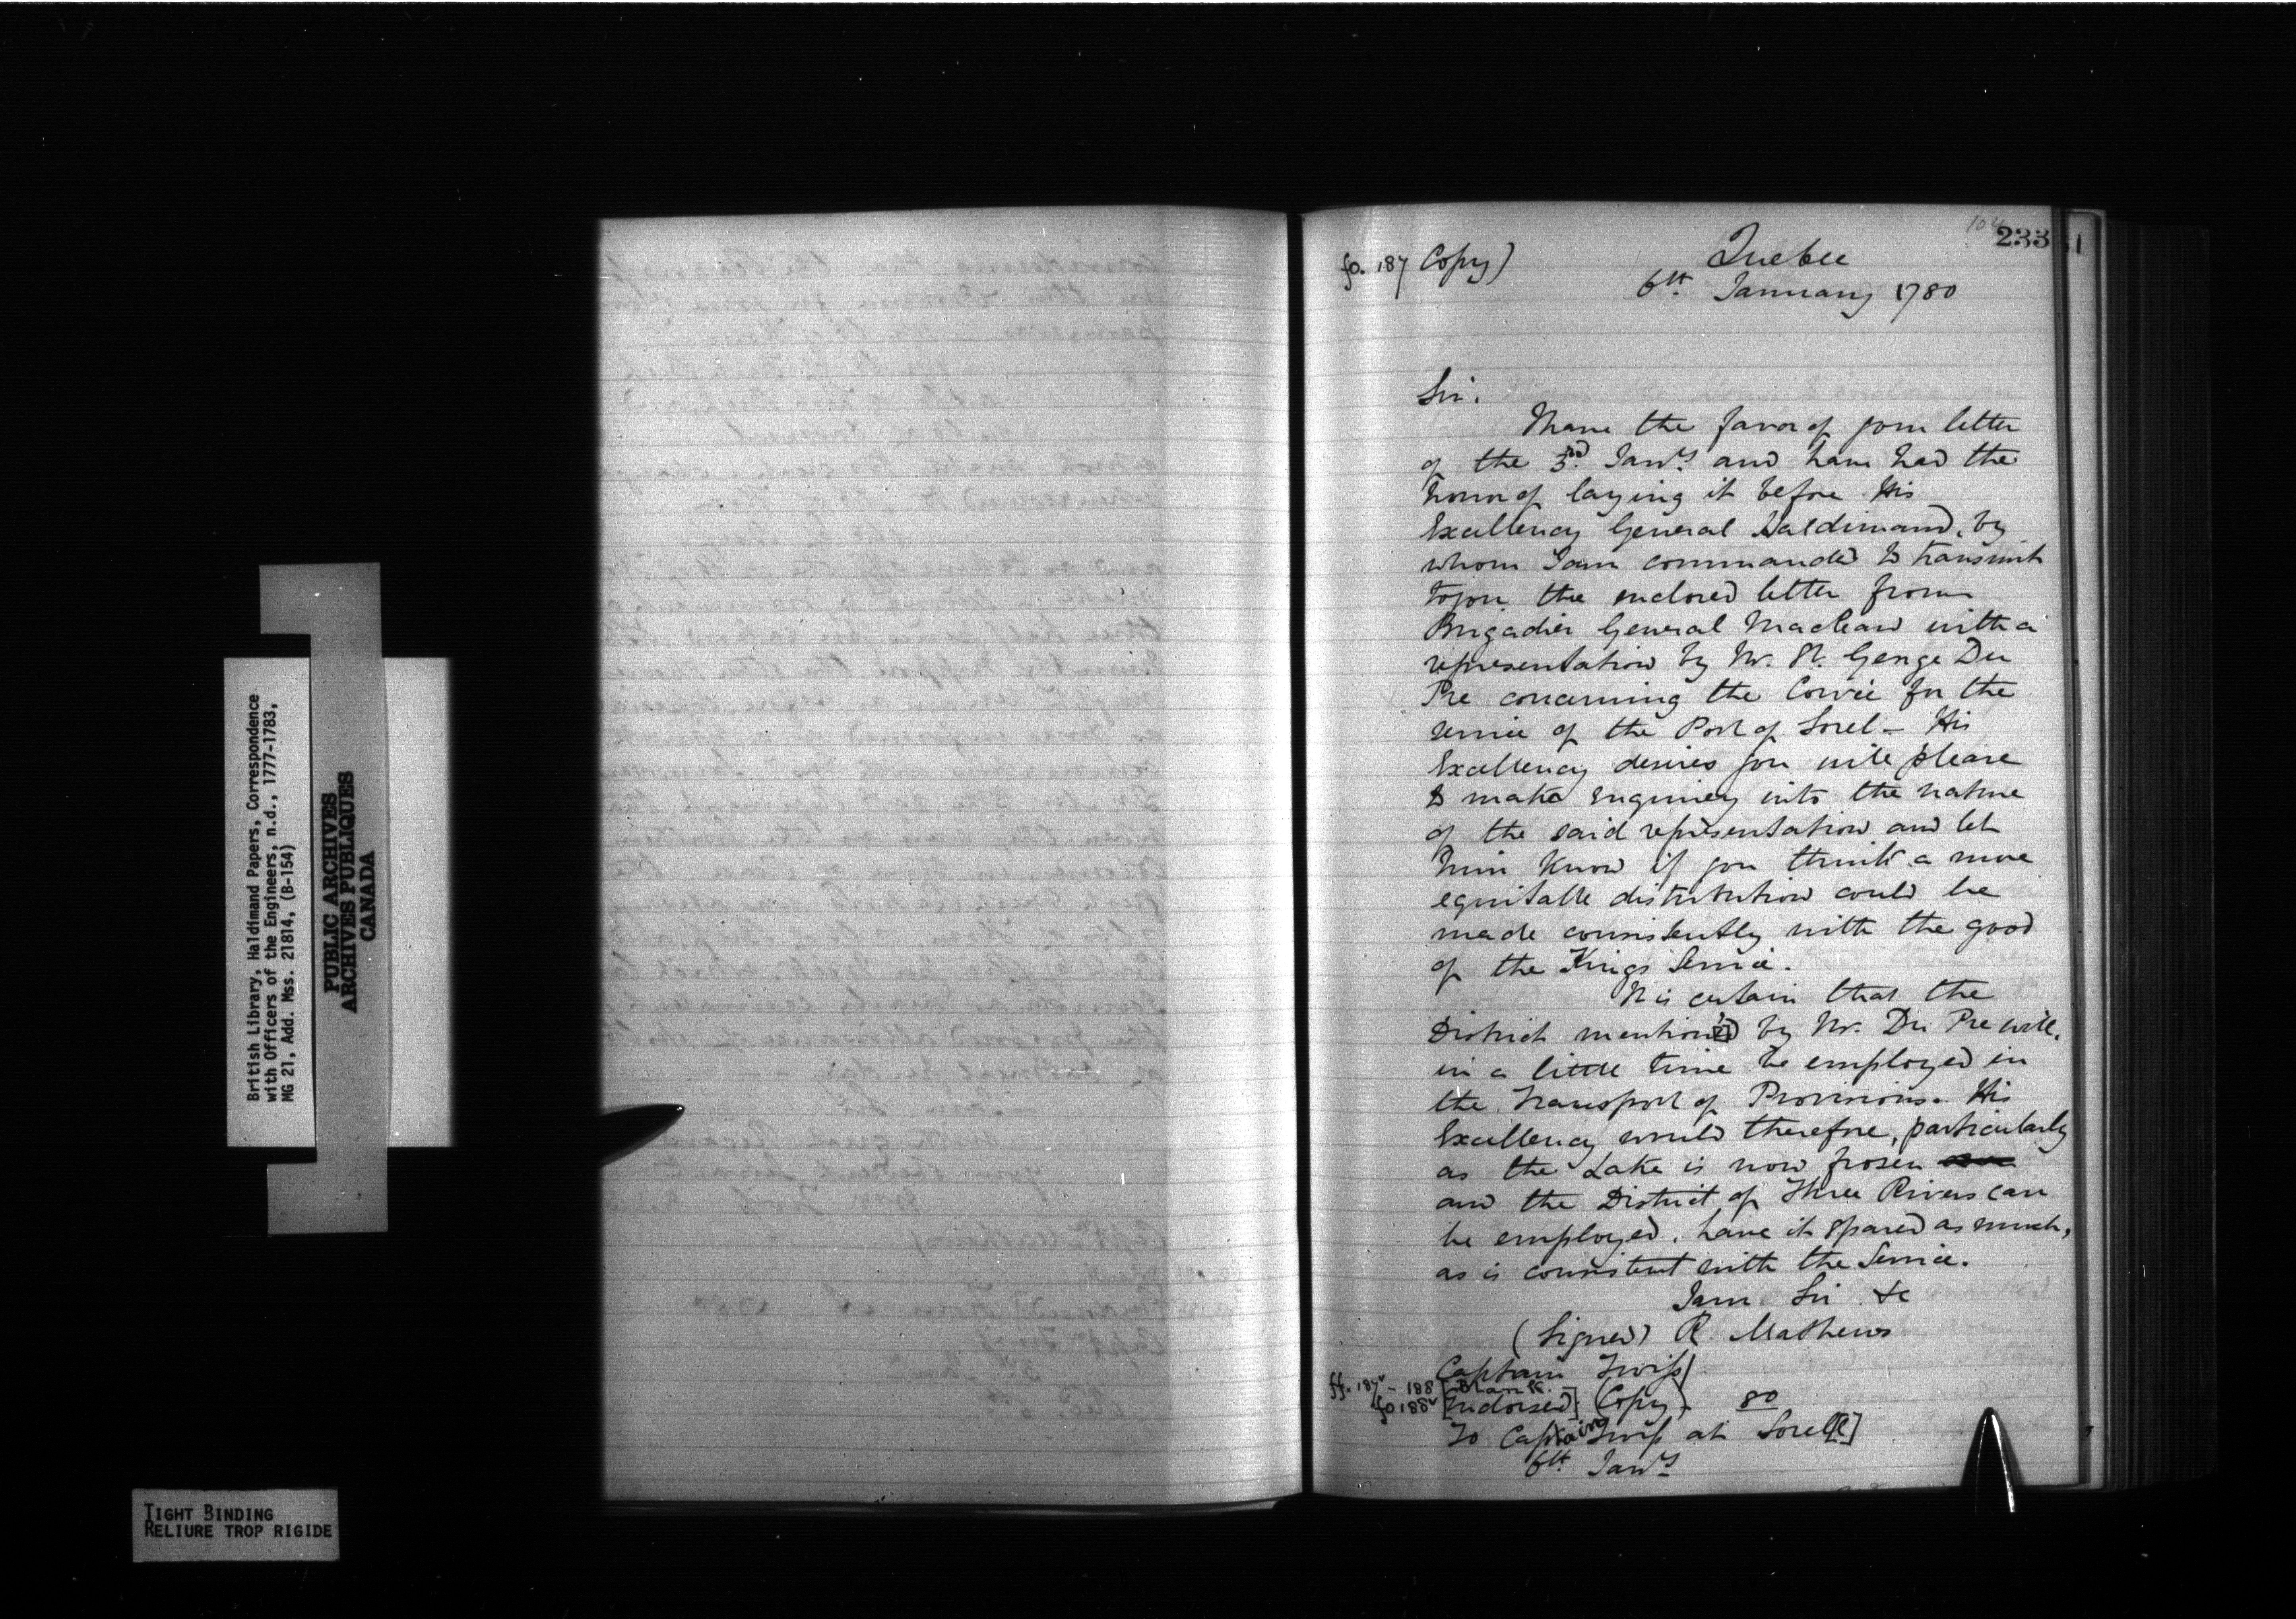 British Library, Haldimand Papers, Correspondence
with Officers of the Engineers, n.d., 1777-1783,
MG 21, Add. Mss. 21814, (B-154)
PUBLIC ARCHIVES
ARCHIVES PUBLIQUES
CANADA
TIGHT BINDING
RELIURE TROP RIGIDE
233
fo. 187 Copy)
Quebec
6th January 1780
Sir.
I have the favor of your letter
of the 3rd Jany and have had the
honor of laying it before His
Excellency General Haldimand, by
whom I am commanded to transmit
to you the enclosed letter from
Brigadier General Maclean with a
representation by Mr. St. George Du
Pre concerning the Corvée for the
service of the Post of Sorel - His
Excellency desires you will please
to make enquiry into the nature
of the said representation and let
him know if you think a more
equitable distribution could be
made consistently with the good
of the Kings Service.
It is certain that the
District mention'd by Mr. Du Pre will,
in a little time be employed in
the Transport of Provisions. His
Excellency would therefore, particularly
as the Lake is now frosen
and the District of Three Rivers can
be employed, have it spared as much,
as is consistent with the Service.
I am Sir &c
(Signed) R. Mathews
Captain Twiss
ff. 187v - 188 Blank.
fo 188v [Endorsed]. (Copy) 80
To Captain Twiss at Sorel[l]
6th Jany